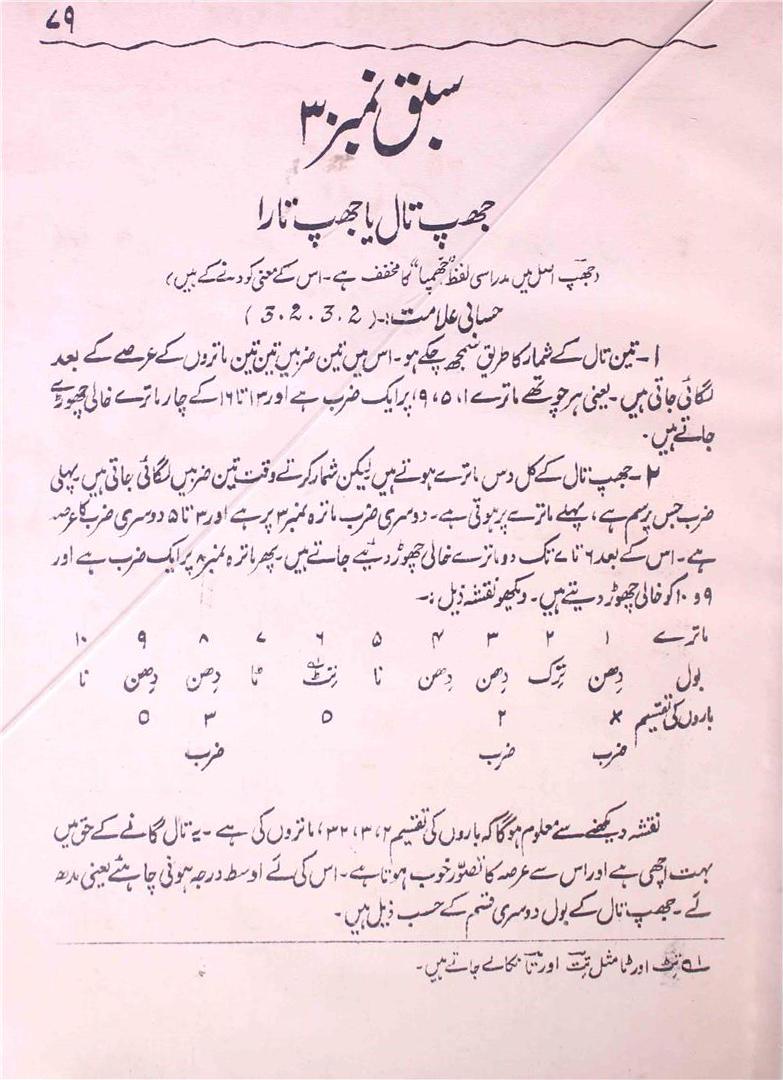 ۷۹
سبق نمبر ۳۰
جھپ تال یا جھپ تارا
(جھپ اصل میں مدراسی لفظ "جھمپا" کا مخفف ہے۔ اس کے معنی کودنے کے ہیں)
حسابی علامت:۔ (3.2.3.2)
۱۔ تین تال کے شمار کا طریق سمجھ چکے ہو۔ اس میں تین ضربیں تین تین ماتروں کے عرصے کے بعد
لگائی جاتی ہیں۔ یعنی ہر چوتھے ماترے ۱، ۵، ۹، پر ایک ضرب ہے اور ۱۳ تا ۱۶ کے چار ماترے خالی چھوڑے
جاتے ہیں۔
۲۔ جھپ تال کے کل دس ماترے ہوتے ہیں لیکن شمار کرتے وقت تین ضربیں لگائی جاتی ہیں۔ پہلی
ضرب جس پر سم ہے، پہلے ماترے پر ہوتی ہے۔ دوسری ضرب ماترہ نمبر ۳ پر ہے اور ۳ تا ۵ دوسری ضرب کا عرصہ
ہے۔ اس کے بعد ۶ تا ۷ تک دو ماترے خالی چھوڑ دیئے جاتے ہیں۔ پھر ماترہ نمبر ۸ پر ایک ضرب ہے اور
۹ و ۱۰ کو خالی چھوڑ دیتے ہیں۔ دیکھو نقشہ ذیل:۔
ماترے ۱ ۲ ۳ ۴ ۵ ۶ ۷ ۸ ۹ ۱۰
بول دِھن تِرک دِھن دِھن نا تِٹ؎۱ ٹا دِھن دِھن نا
باروں کی تقسیم × ۲ ٥ ۳ ٥
ضرب ضرب ضرب
نقشہ دیکھنے سے معلوم ہوگا کہ باروں کی تقسیم ۲، ۳، ۲ ۳، ماتروں کی ہے۔ یہ تال گانے کے حق میں
بہت اچھی ہے اور اس سے عرصہ کا تصوّر خوب ہوتا ہے۔ اس کی لے اوسط درجہ ہونی چاہئے یعنی مدھ
لے۔ جھپ تال کے بول دوسری قسم کے حسب ذیل ہیں۔
؎۱ تِٹ اور ٹا مثل تِت اور تا نکالے جاتے ہیں۔